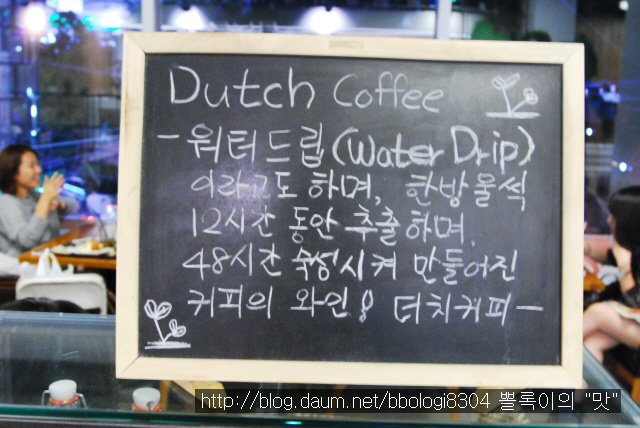 Dutch Coffee
- 워터드립(Water Drip)
이라고도 하며, 한방울씩
12시간 동안 추출하며,
48시간 숙성시켜 만들어진
커피의 와인! 더치커피-
http://blog.daum.net/bbologi8304 뽈록이의 "맛"